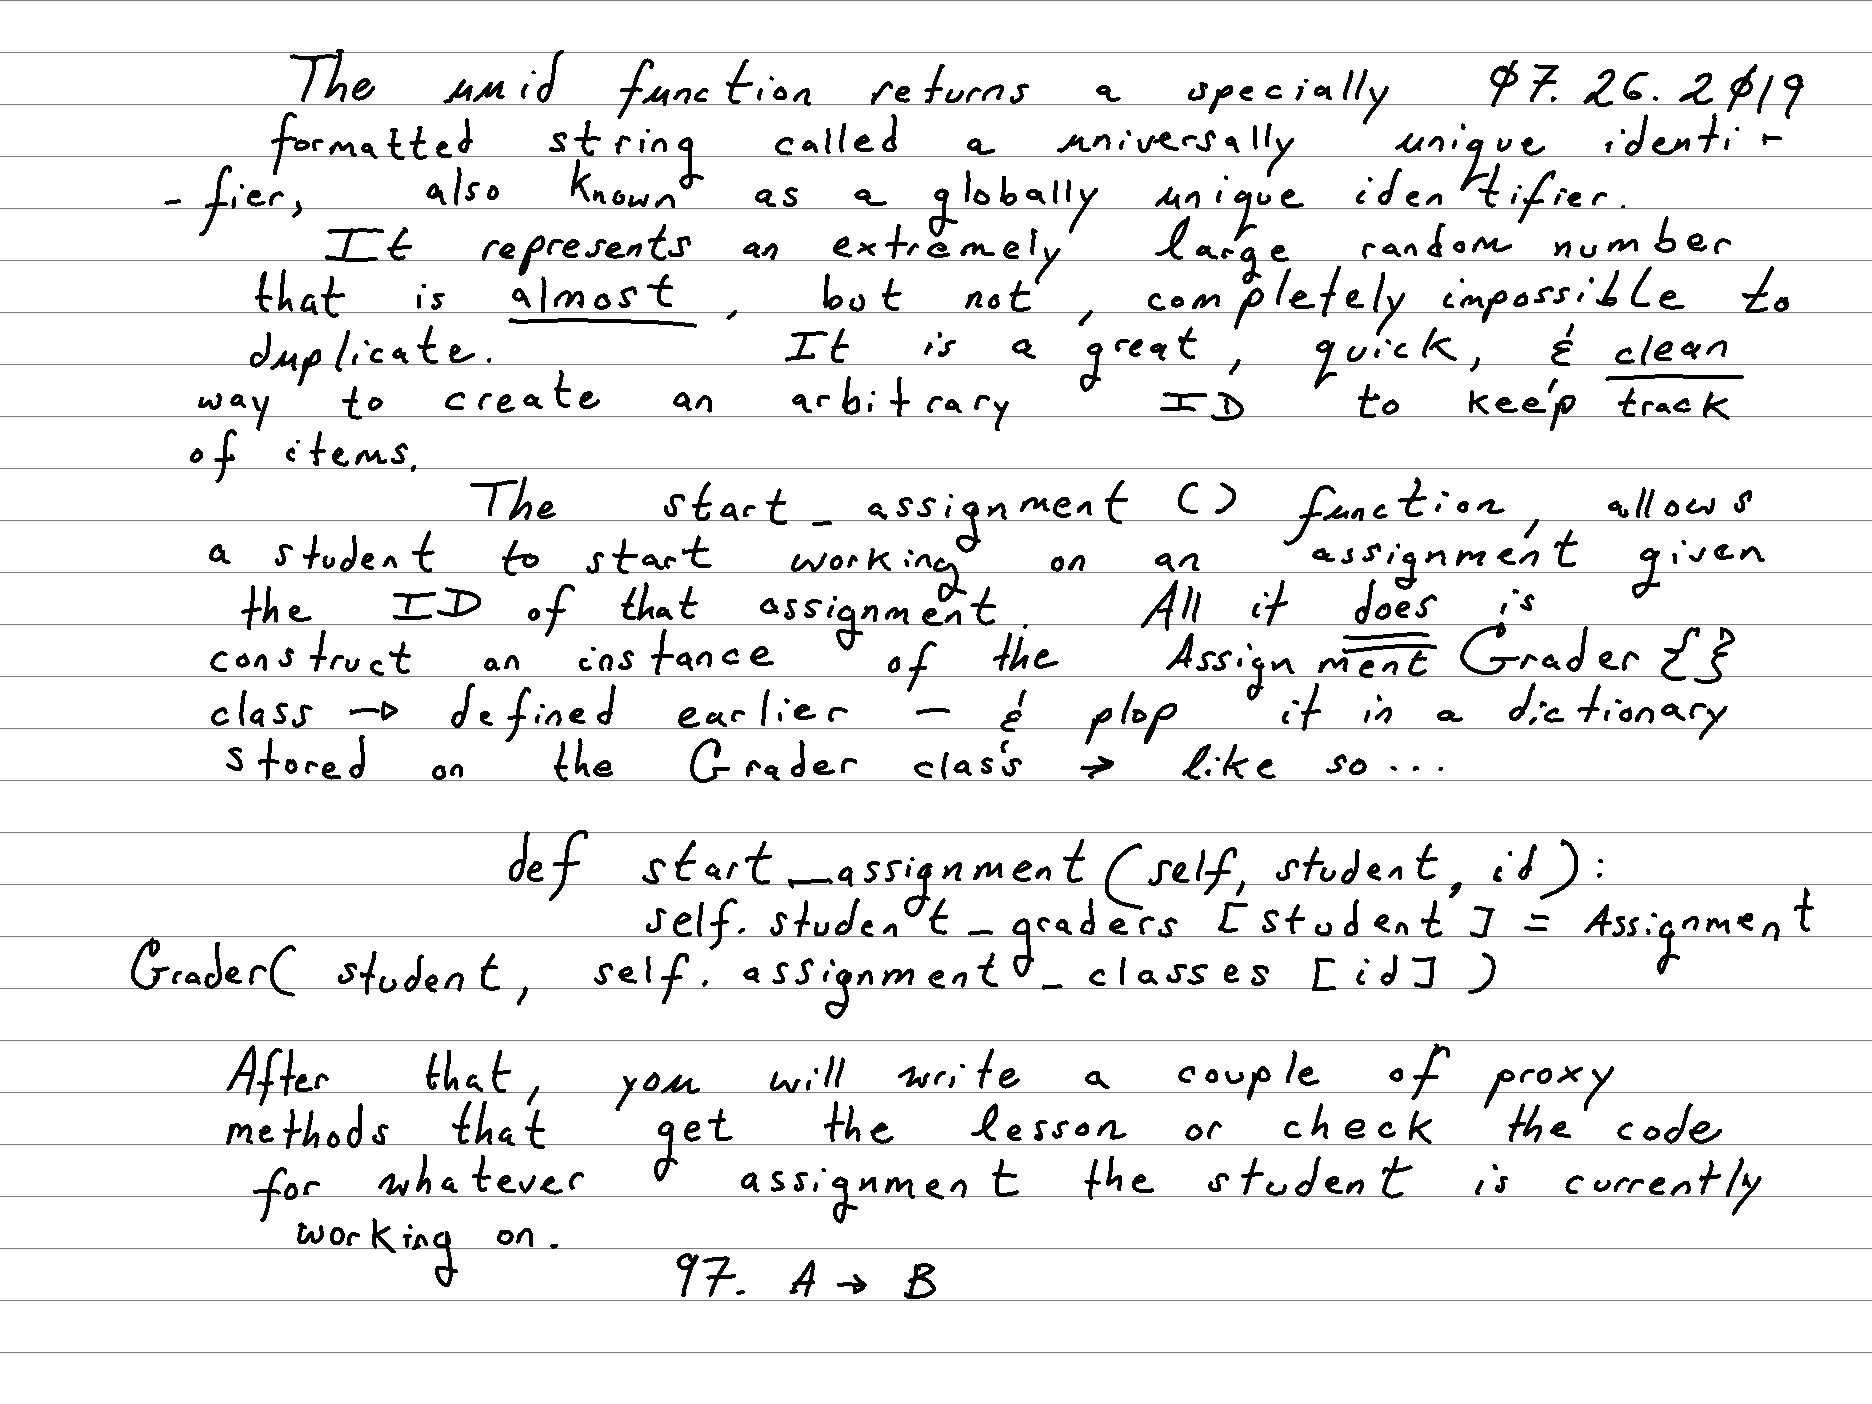 The uuid function returns a specially φ7. 26. 2φ19
formatted string called a universally unique identi -
- fier, also known as a globally unique identifier.
It represents an extremely large random number
that is almost, but not, completely impossible to
duplicate. It is a great, quick, & clean
way to create an arbitrary ID to keep track
of items.
The start_assignment () function, allows
a student to start working on an assignment given
the ID of that assignment. All it does is
construct an instance of the Assignment Grader {}
class → defined earlier — & plop it in a dictionary
stored on the Grader class → like so...
def start_assignment (self, student, id):
self. student_graders [student] = Assignment
Grader( student, self. assignment_classes [id] )
After that, you will write a couple of proxy
methods that get the lesson or check the code
for whatever assignment the student is currently
working on.
97. A → B